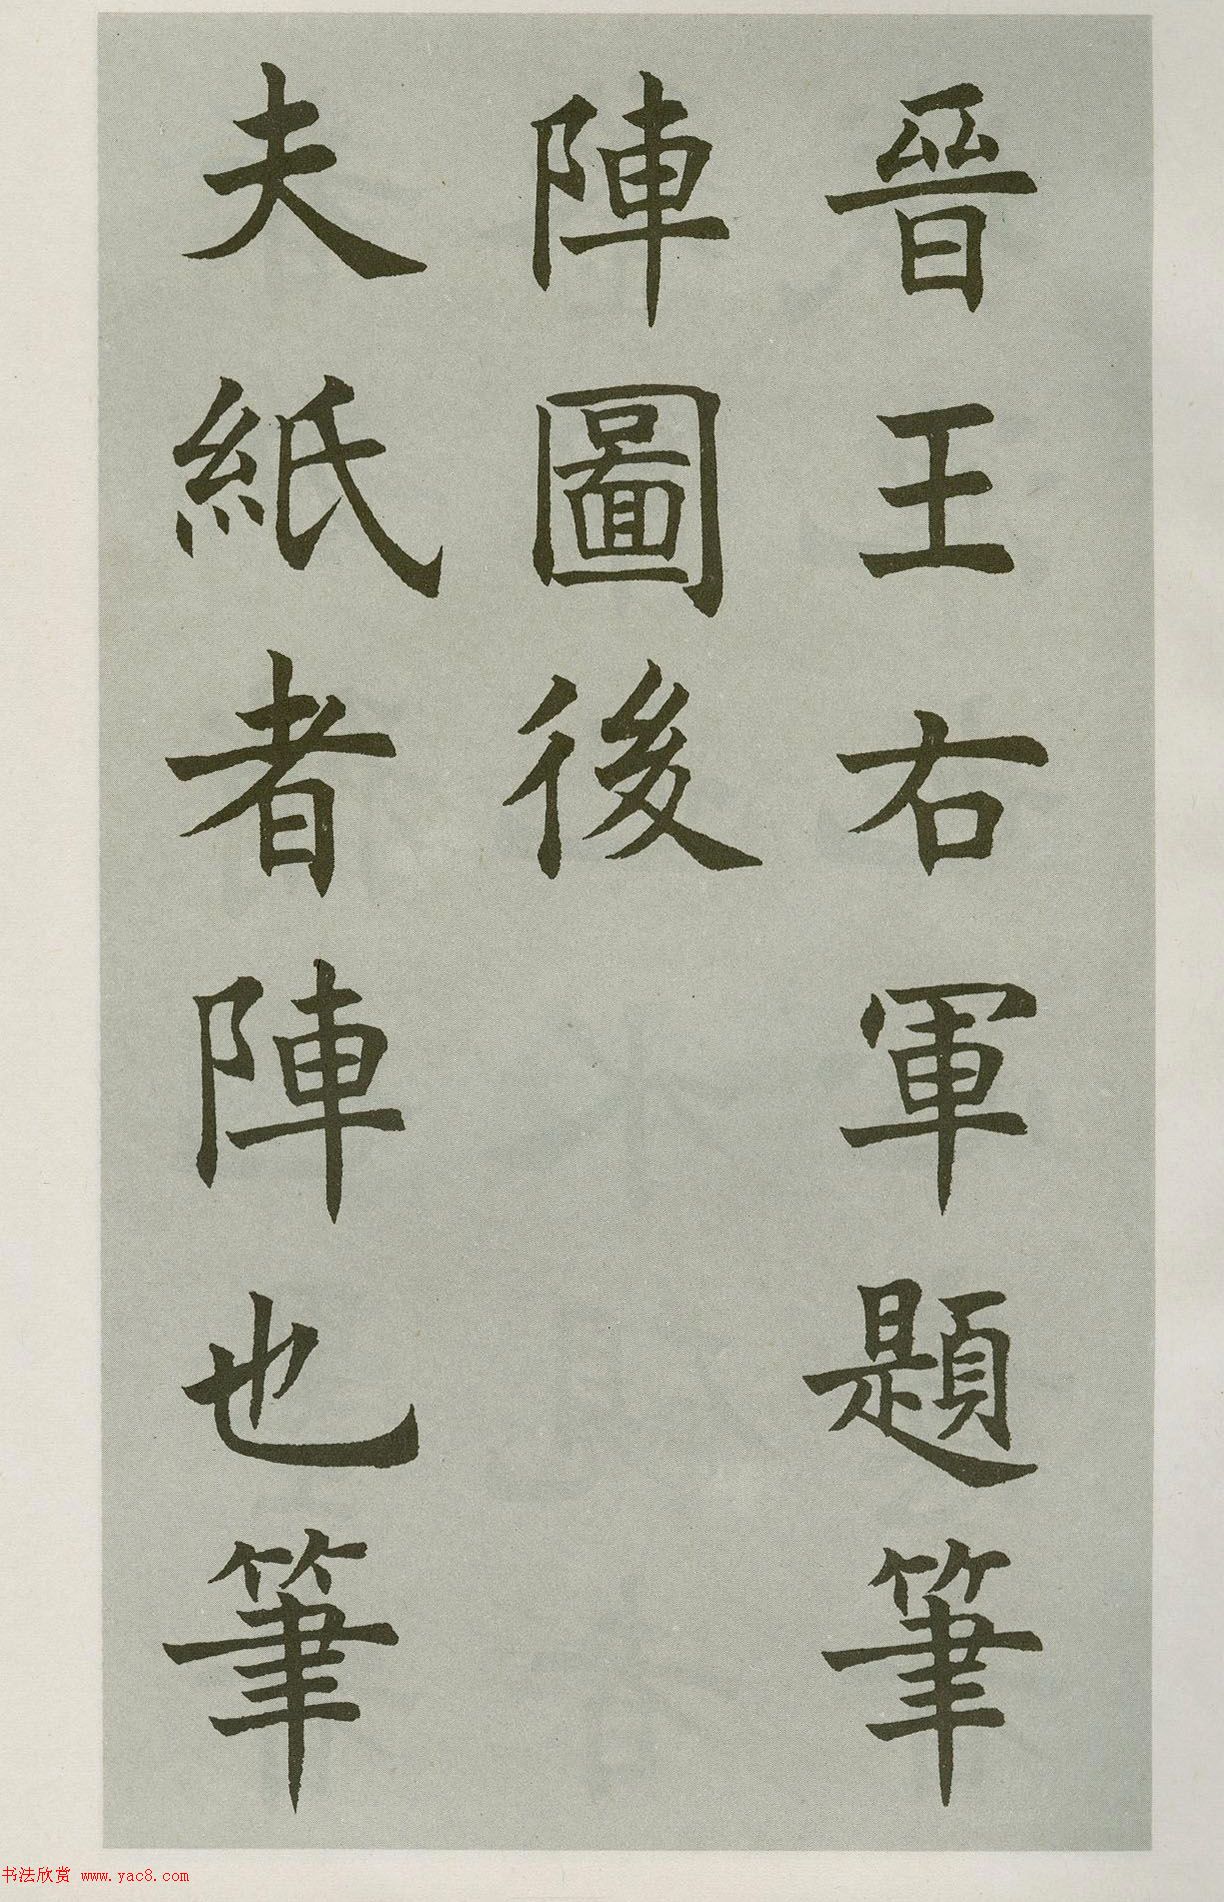 晉王右軍題筆
陣圖後
夫紙者陣也筆
书法欣赏 www.yac8.com